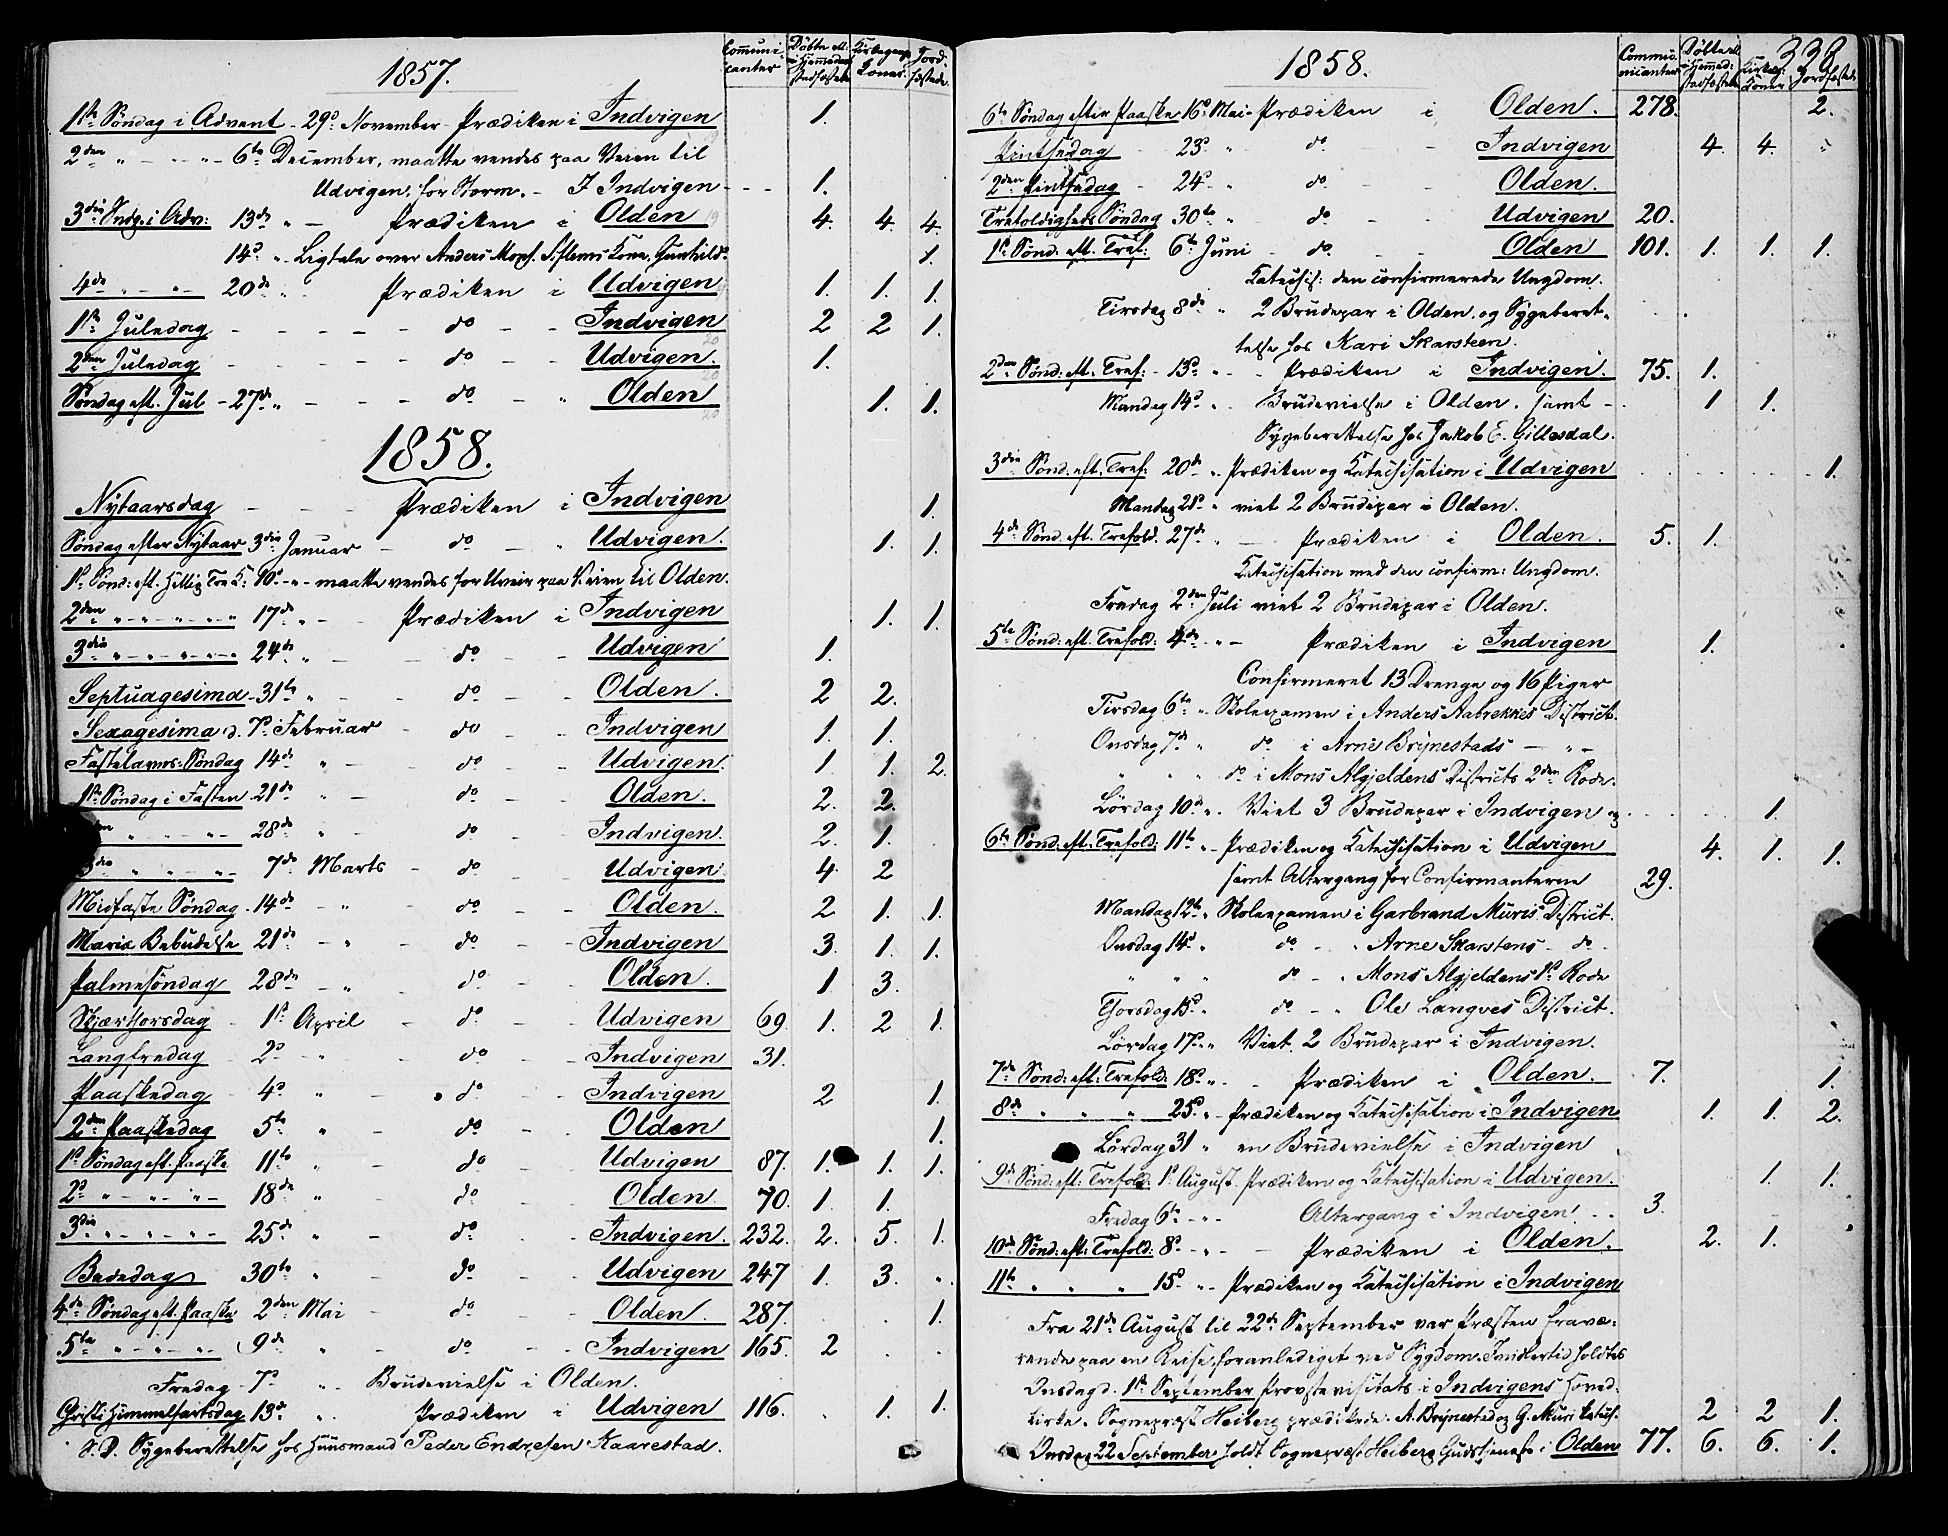 1857.
Communi-
canter
Döbte el.
i Hjemmedøb
stadfæstede
Kirkegangs
Koner.
Jord-
fæstede.
1ste Søndag i Advent - 29de November - Prædiken i Indvigen 1.
2den " - " - " - 6te December, maatte vendes paa Veien til
Udvigen, for Storm. - I Indvigen - - - 1.
3die Sndg. i Adv: 13de " - Prædiken i Olden 4. 4. 4.
14de " Ligtale over Anders Kone, Gunhild 1.
4de " - " - 20de " Prædiken i Udvigen 1. 1. 1.
1ste Juledag - - - - do - - Indvigen 2 2 1.
2den Juledag - - - - do - - Udvigen. 1.
Søndag eft. Jul - 27de " - - - do - " Olden 1. 1.
1858.
Nytaarsdag - - - Prædiken i Indvigen 1.
Søndag efter Nytaar 3die Januar - do - " Udvigen. 1. 1.
1ste Sønd: eft. Hellig Tre K: 10de - " - maatte vendes for Uveir paa Veien til Olden.
2den " - " - " - " 17de " - - Prædiken i Indvigen 1. 1.
3die " - " - " - " 24de " - - do - - Udvigen 1.
Septuagesima - 31te " - - do - - Olden. 2 2.
Sexagesima d. 7de Februar - do - - Indvigen 1. 1.
Fastelavns-Søndag 14de " - do - - Udvigen. 1. 1. 2.
1ste Søndag i Fasten 21de " - do - - Olden. 2. 2.
" - " - " 28de " - do - - Indvigen. 2. 1.
3die " " " - " - 7de Marts - do - - Udvigen 4. 2
Midfaste Søndag - 14de - " - do - - Olden. 2 1. 1.
Mariæ Bebudelse 21de - " - do - - Indvigen 3. 1. 1.
Palmesøndag - 28de - " - do - - Olden. 1 3.
Skjærthorsdag - 1ste April - do - Udvigen 69. 1. 2 1.
Langfredag - 2den - " - do - - Indvigen 31.
Paaskedag - 4de " - do - - Indvigen 2 1.
2den Paaskedag 5te " - do - - Olden 1.
1ste Søndag eft. Paaske 11te " - do - Udvigen 87. 1. 1. 1.
2den " - " - " - 18de " - do - - Olden. 70. 1. 1.
3die " - " - " - 25de " - do - - Indvigen. 232. 2. 5. 1.
Bededag 30te " - do - - Udvigen 247 1. 3. "
4de Søndag eft. Paaske 2den Mai - do - - Olden. 287. . . 1.
5te " - " - " - 9de " - do - - Indvigen 165. 2 . .
Fredag - 7de " " Brudevielse i Olden.
Christi Himmelfartsdag 13de " . Prædiken i Udvigen 116. . 1. 1.
S. D. Sygeberettelse hos Huusmand Peder Endresen Kaarestad.
1858.
Commu-
nicanter
Döbte el.
i Hjemmed:
stadfæstede
Kirkeg:
Koner
338
Jordfæstede
6te Søndag efter Paaske 16de Mai - Prædiken i Olden. 278. 2.
Pintsedag - 23de " do - - Indvigen 4. 4. "
2den Pintsedag - 24de " do - - Olden.
Trefoldigheds Søndag 30te " do - - Udvigen 20.
1ste Sønd. eft. Tref: 6te Juni - do - - Olden 101. 1. 1. 1.
Katechis: den confirmerede Ungdom.
Tirsdag 8de " 2 Brudepar i Olden, og Sygeberet-
telse hos Kari Skarsteen.
2den Sønd: eft. Tref: - 13de " - Prædiken i Indvigen. 75. 1.
Mandag 14de " . Brudevielse i Olden. samt - 1 1.
Sygeberettelse hos Jakob E. Gillesdal.
3die Sønd: eft. Tref: 20de " Prædiken og Katechisation i Udvigen 1.
Mandag 21de " viet 2 Brudepar i Olden.
4de Sønd. eft. Trefold. 27de " - Prædiken i Olden. 5. 1.
Katechisation med den confirm: Ungdom.
Fredag 2den Juli viet 2 Brudepar i Olden.
5te Sønd: eft. Trefold: 4de " - Prædiken i Indvigen 1.
Confirmeret 13 Drenge og 16 Piger
Tirsdag 6te " Skoleexamen i Anders Aabrekkes District.
Onsdag 7de " do i Arne Brynestads - " -
" " " do i Mons Algjeldens Districts 2den Rode.
Lördag 10de " . Viet 3 Brudepar i Indvigen og 1.
6te Sønd. eft. Trefold: 11te " - Prædiken og Katechisation i Udvigen 4. 1. 1.
samt Altergang for Confirmanterne 29.
Mandag 12te " Skoleexamen i Garbrand Muris District.
Onsdag 14de " do - " Arne Skarstens - do -
" " " do - " Mons Algjeldens 1ste Rode
Thorsdag 15de " do - " Ole Langves District.
Lördag 17de " Viet 2 Brudepar i Indvigen.
7de Sønd: eft: Trefold: 18de " - Prædiken i Olden. 7. 1.
8de " " " " 25de " - Prædiken og Katechisation i Indvigen 1. 1. 2.
Lördag 31 " en Brudevielse i Indvigen
9de Sønd: eft: Trefold: 1ste August. Prædiken og Katechisation i Udvigen. 1. 1.
Fredag 6te - " - Altergang i Indvigen. . . 3.
10de Sønd: eft: Trefold: 8de - " - Prædiken i Olden. 2. 1.
11te " " " " 15de " - Prædiken og Katechisation i Indvigen
Fra 21de August til 22de September var Præsten fravæ-
rende paa en Reise, foranlediget ved Sygdom. Imidlertid holdtes
Onsdag d. 1ste September Provstevisitats i Indvigens Hoved-
kirke. Sognepræst Heiberg prædikede. A. Brynestad og G. Muri katech. 2 2 1.
Onsdag 22 September holdt Sognepræst Heiberg Gudstjeneste i Olden 77. 6. 6. 1.